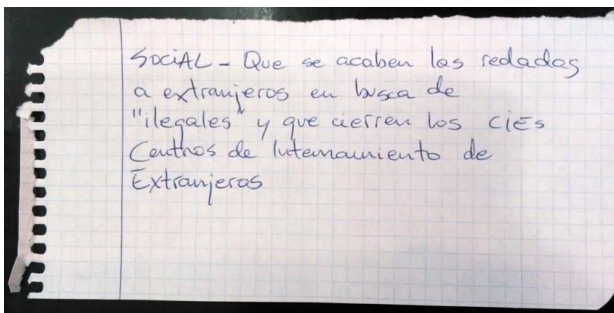 SOCIAL - Que se acaben las redadas
a extranjeros en busca de
"ilegales" y que cierren los CIEs
Centros de Internamiento de
Extranjeros